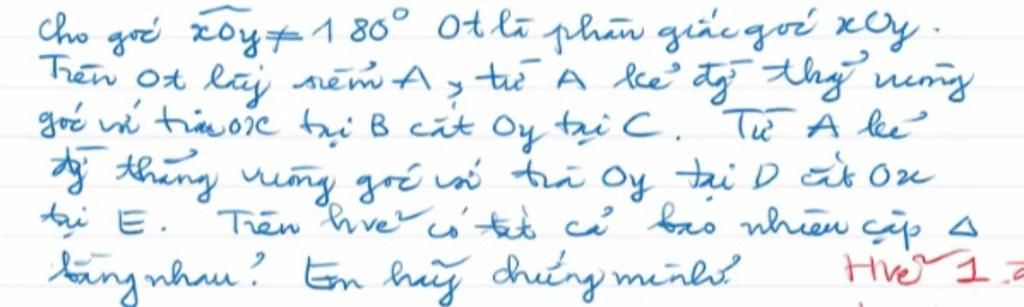 Cho góc xOy ≠ 180° Ot là phân giác góc xOy.
Trên Ot lấy điểm A, từ A kẻ đg thg vuông
góc với tia Ox tại B cắt Oy tại C. Từ A kẻ
đg thẳng vuông góc với tia Oy tại D cắt Ox
tại E. Trên hvẽ có tất cả bao nhiêu cặp Δ
bằng nhau? Em hãy chứng minh? Hvẽ 1